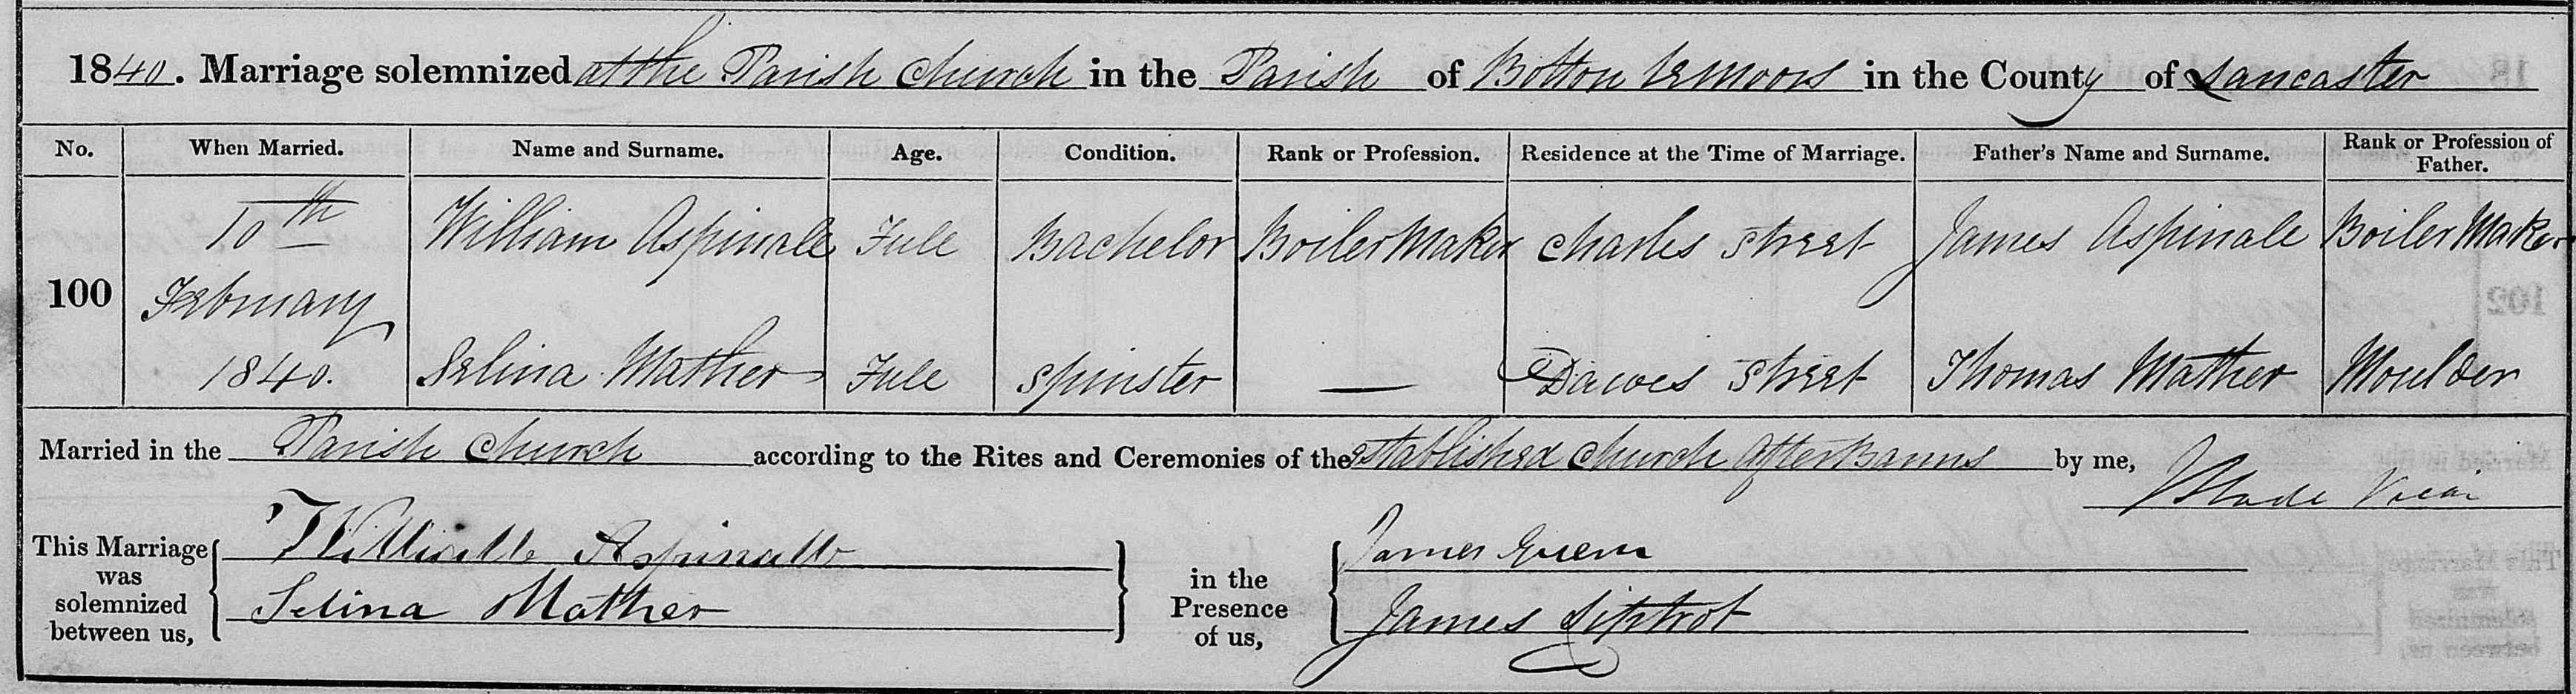 1840. Marriage solemnized at the Parish Church in the Parish of Bolton le moors in the County of Lancaster
No. When Married. Name and Surname. Age. Condition. Rank or Profession. Residence at the Time of Marriage. Father's Name and Surname. Rank or Profession of Father.
100
10th February 1840.
William Aspinall Full Bachelor Boiler Maker Charles Street James Aspinall Boiler Maker
Selina Mather Full Spinster — Dawes Street Thomas Mather Moulder
Married in the Parish Church according to the Rites and Ceremonies of the Established Church after Banns by me,
Slade Vicar
This Marriage was solemnized between us,
William Aspinall
Selina Mather
in the Presence of us,
James
James Liptrot